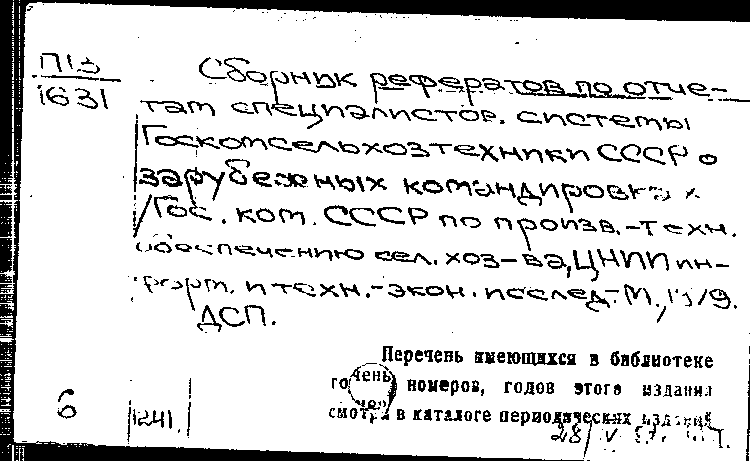 П13
1631
Сборник рефератов по отче-
там специалистов. системы
Госкомсельхозтехники СССР о
зарубежных командировках
/Гос. ком. СССР по произв.-техн.
обеспечению сел. хоз-ва, ЦНИИ ин-
форм. и техн.-экон. исслед.-М.,
ДСП.
Перечень имеющихся в библиотеке
номеров, годов этого издания
смотри в каталоге периодических изданий
6
1241.
28/V